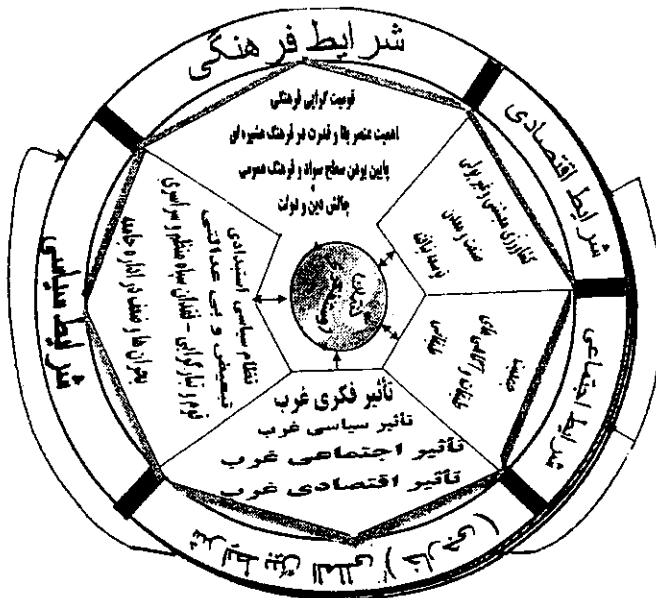 شرایط فرهنگی
قومیت گرایی فرهنگی
اهمیت عنصر بقا و قدرت در فرهنگ عشیره ای
پایین بودن سطح سواد و فرهنگ عمومی
چالش دین و دولت
شرایط اقتصادی
کشاورزی معیشتی و غیر پولی
صنعت و معادن
توسعه نیافته
شرایط اجتماعی
جمعیت
شرایط بین المللی (خارجی)
تأثیر فکری غرب
تأثیر سیاسی غرب
تأثیر اجتماعی غرب
تأثیر اقتصادی غرب
شرایط سیاسی
نظام سیاسی استبدادی
تبعیض و بی عدالتی
قوم و تبارگرایی - فقدان سپاه منظم و سراسری
بحران ها و ضعف در اداره جامعه